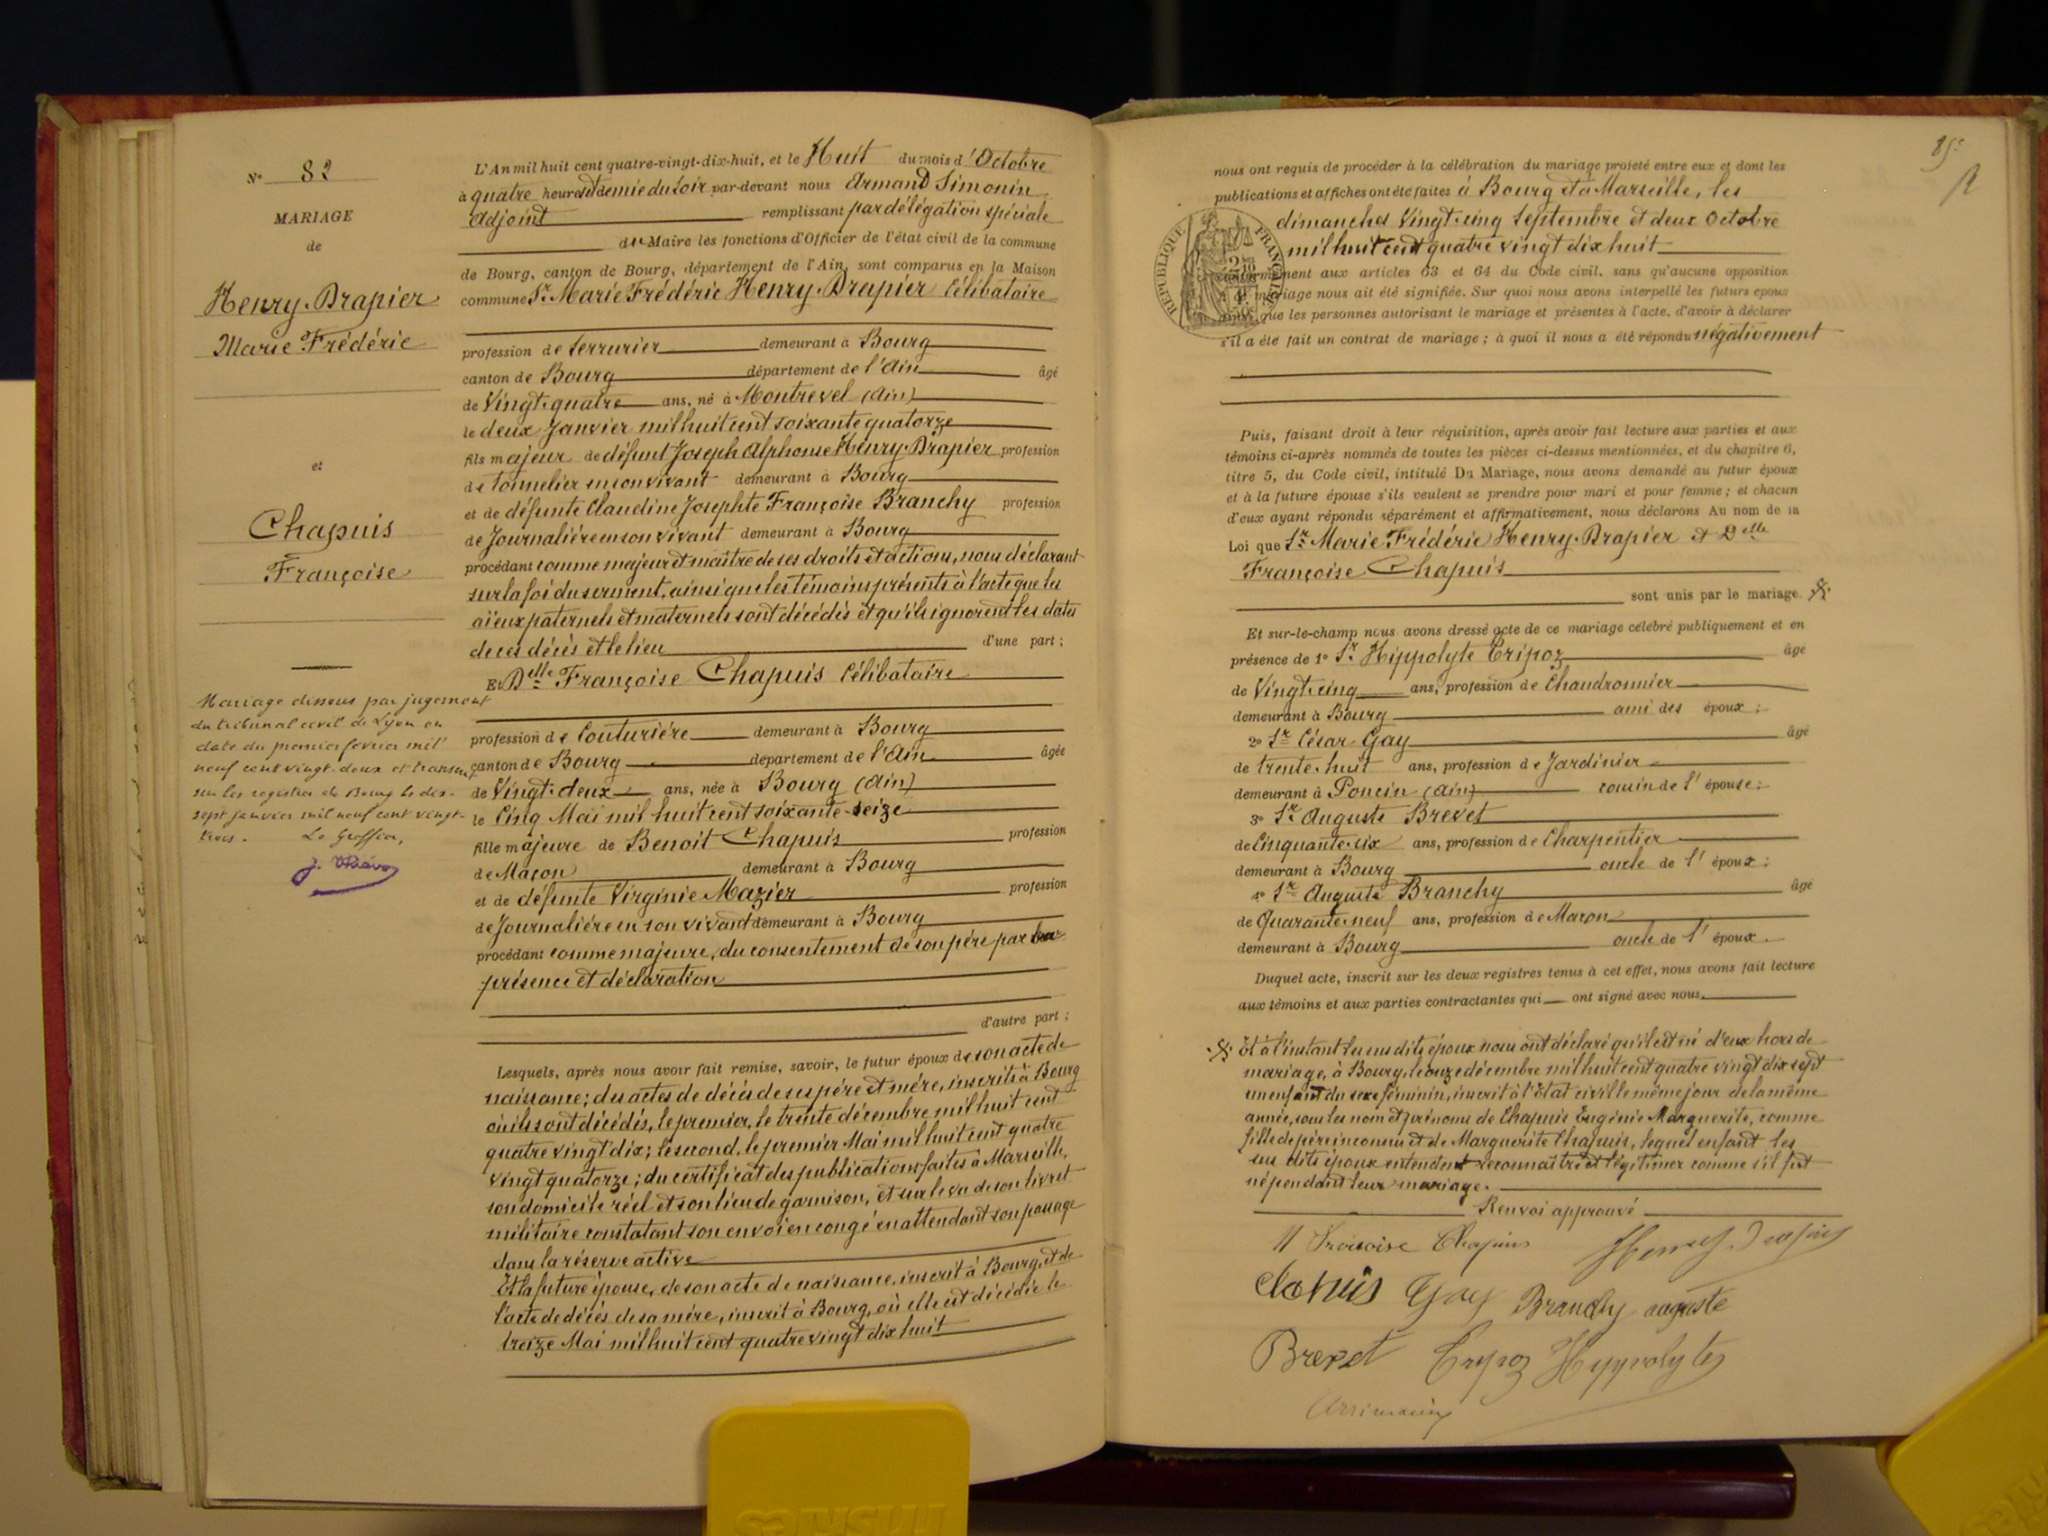 N° 82
MARIAGE
de
Henry-Drapier
Marie Frédéric
et
Chapuis
Françoise
Mariage dissous par jugement
du tribunal civil de Lyon en
date du premier février mil
neuf cent vingt-deux et transcrit
sur les registres de Bourg le dix-
sept janvier mil neuf cent vingt-
trois. Le Greffier,
L'An mil huit cent quatre-vingt-dix-huit, et le Huit du mois d'Octobre
à quatre heures et demie du soir par-devant nous Armand Simonin
Adjoint remplissant par délégation spéciale
du Maire les fonctions d'Officier de l'état civil de la commune
de Bourg, canton de Bourg, département de l'Ain, sont comparus en la Maison
commune Sr. Marie Frédéric Henry-Drapier Célibataire
profession de Serrurier demeurant à Bourg
canton de Bourg département de l'Ain âgé
de Vingt-quatre ans, né à Montrevel (Ain)
le deux Janvier mil huit cent soixante quatorze
fils majeur de défunt Joseph Alphonse Henry-Drapier profession
de tonnelier en son vivant demeurant à Bourg
et de défunte Claudine Josephte Françoise Branchy profession
de Journalière en son vivant demeurant à Bourg
procédant comme majeur et maître de ses droits et actions, nous déclarant
sur la foi du serment, ainsi que les témoins présents à l'acte que les
aïeux paternels et maternels sont décédés et qu'ils ignorent les dates
de ces décès et le lieu d'une part;
Et Delle Françoise Chapuis Célibataire
profession de Couturière demeurant à Bourg
canton de Bourg département de l'Ain âgée
de Vingt-deux ans, née à Bourg (Ain)
le Cinq Mai mil huit cent soixante-seize
fille majeure de Benoit Chapuis profession
de Maçon demeurant à Bourg
et de défunte Virginie Mazier profession
de Journalière en son vivant demeurant à Bourg
procédant comme majeure, du consentement de son père par sa
présence et déclaration
d'autre part;
Lesquels, après nous avoir fait remise, savoir, le futur époux de son acte de
naissance; des actes de décès de ses père et mère, inscrits à Bourg
où ils sont décédés, le premier, le trente décembre mil huit cent
quatre vingt dix; le second, le premier Mai mil huit cent quatre
vingt quatorze; du certificat des publications faites à Marseille,
son domicile réel et son lieu de garnison, et sur le vu de son livret
militaire constatant son envoi en congé en attendant son passage
dans la réserve active
Et la future épouse, de son acte de naissance, inscrit à Bourg, et de
l'acte de décès de sa mère, inscrit à Bourg, où elle est décédée le
treize Mai mil huit cent quatre vingt dix huit
85
nous ont requis de procéder à la célébration du mariage projeté entre eux et dont les
publications et affiches ont été faites à Bourg et à Marseille, les
dimanches Vingt-cinq Septembre et deux Octobre
mil huit cent quatre vingt dix huit
RÉPUBLIQUE FRANÇAISE
conformément aux articles 63 et 64 du Code civil, sans qu'aucune opposition
mariage nous ait été signifiée. Sur quoi nous avons interpellé les futurs époux
que les personnes autorisant le mariage et présentes à l'acte, d'avoir à déclarer
s'il a été fait un contrat de mariage; à quoi il nous a été répondu négativement
Puis, faisant droit à leur réquisition, après avoir fait lecture aux parties et aux
témoins ci-après nommés de toutes les pièces ci-dessus mentionnées, et du chapitre 6,
titre 5, du Code civil, intitulé Du Mariage, nous avons demandé au futur époux
et à la future épouse s'ils veulent se prendre pour mari et pour femme; et chacun
d'eux ayant répondu séparément et affirmativement, nous déclarons Au nom de la
Loi que Sr. Marie Frédéric Henry-Drapier et Delle
Françoise Chapuis
sont unis par le mariage.
Et sur-le-champ nous avons dressé acte de ce mariage célébré publiquement et en
présence de 1° Sr. Hippolyte Tripoz âgé
de Vingt-cinq ans, profession de Chaudronnier
demeurant à Bourg ami des époux;
2° Sr. César Gay âgé
de trente-huit ans, profession de Jardinier
demeurant à Poncin (Ain) cousin de l'épouse;
3° Sr. Auguste Brevet
de Cinquante-six ans, profession de Charpentier
demeurant à Bourg oncle de l'époux;
4° Sr. Auguste Branchy âgé
de Quarante-neuf ans, profession de Maçon
demeurant à Bourg oncle de l'époux.
Duquel acte, inscrit sur les deux registres tenus à cet effet, nous avons fait lecture
aux témoins et aux parties contractantes qui ont signé avec nous.
Et à l'instant les sus dits époux nous ont déclaré qu'il est né d'eux hors de
mariage, à Bourg, le onze décembre mil huit cent quatre vingt dix sept
un enfant du sexe féminin, inscrit à l'état civil le même jour de la même
année, sous les nom et prénoms de Chapuis Eugénie Marguerite, comme
fille de père inconnu et de Marguerite Chapuis, lequel enfant les
sus dits époux entendent reconnaître et légitimer comme s'il fut
né pendant leur mariage.
Renvoi approuvé
Chapuis
Gay Branchy auguste
Brevet Tripoz Hyppolyte